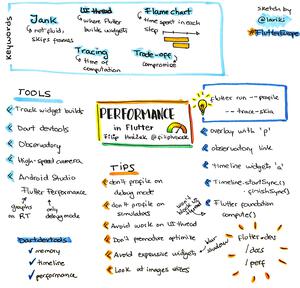 Keywords
Jank
↳ not fluid,
skips frames
UI thread
↳ where Flutter
build widgets
Flamechart
↳ time spent in each
step
Tracing
↳ time of
computation
Trade-off
↳ compromise
sketch by
@lariki
#FlutterEurope
TOOLS
Track widget builds
Dart devtools
Observatory
High-speed camera
Android Studio
Flutter Performance
graphs
on RT
only
debug mode
Dart devtools
✓ memory
✓ timeline
✓ performance
PERFORMANCE
in Flutter
TIPS
don't profile on
debug mode
don't profile on
simulators
Avoid work on UI thread
Don't premature optimize
Avoid expensive widgets
Look at images sizes
flutter run --profile
--trace-skia
overlay with 'p'
observatory link
timeline widgets 'a'
Timeline.startSync()
finishSync()
Flutter foundation
compute()
flutter.dev
/docs
/perf